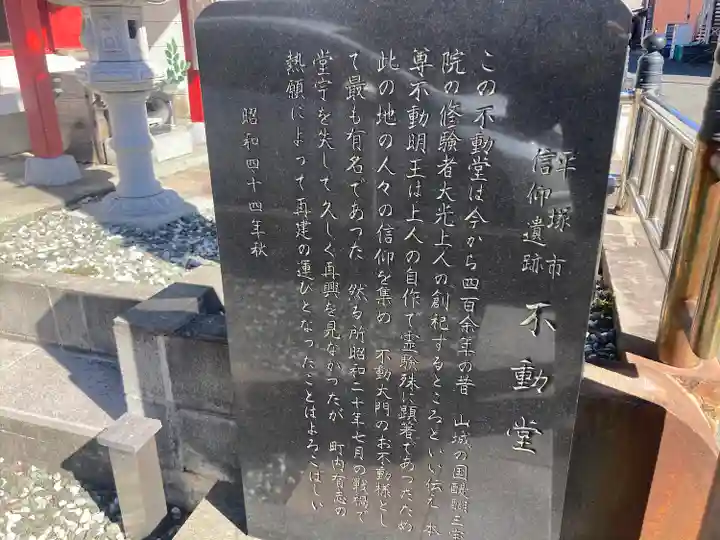 平塚市
信仰遺跡
不動堂
この不動堂は今から四百余年の昔 山城の国醍醐三宝
院の修験者大光上人の創祀するところといい伝え 本
尊不動明王は上人の自作で霊験殊に顕著であつたため
此の地の人々の信仰を集め 不動大門のお不動様とし
て最も有名であつた 然る所昭和二十年七月の戦禍で
堂宇を失して久しく再興を見なかつたが 町内有志の
熱願によつて再建の運びとなつたことはよろこばしい
昭和四十四年秋